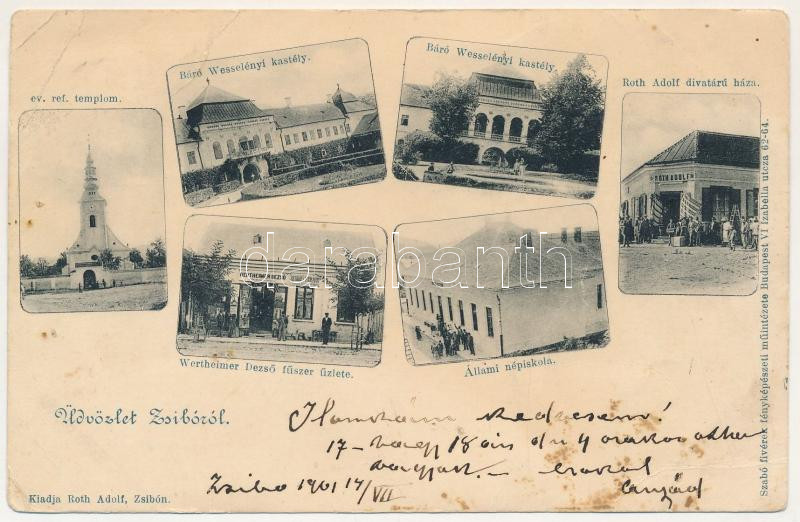 ev. ref. templom.
Báró Wesselényi kastély.
Báró Wesselényi kastély.
Roth Adolf divatárú háza.
ROTH ADOLF
WERTHEIMER DEZSŐ
darabanth
Wertheimer Dezső fűszer üzlete.
Állami népiskola.
Szabó fivérek fényképészeti műintézete Budapest VI Izabella utcza 62-64.
Üdvözlet Zsibóról.
kedvesem!
17 - vagy 18 án du 4 órakor
Zsibo 1901 14/VII
Kiadja Roth Adolf, Zsibón.